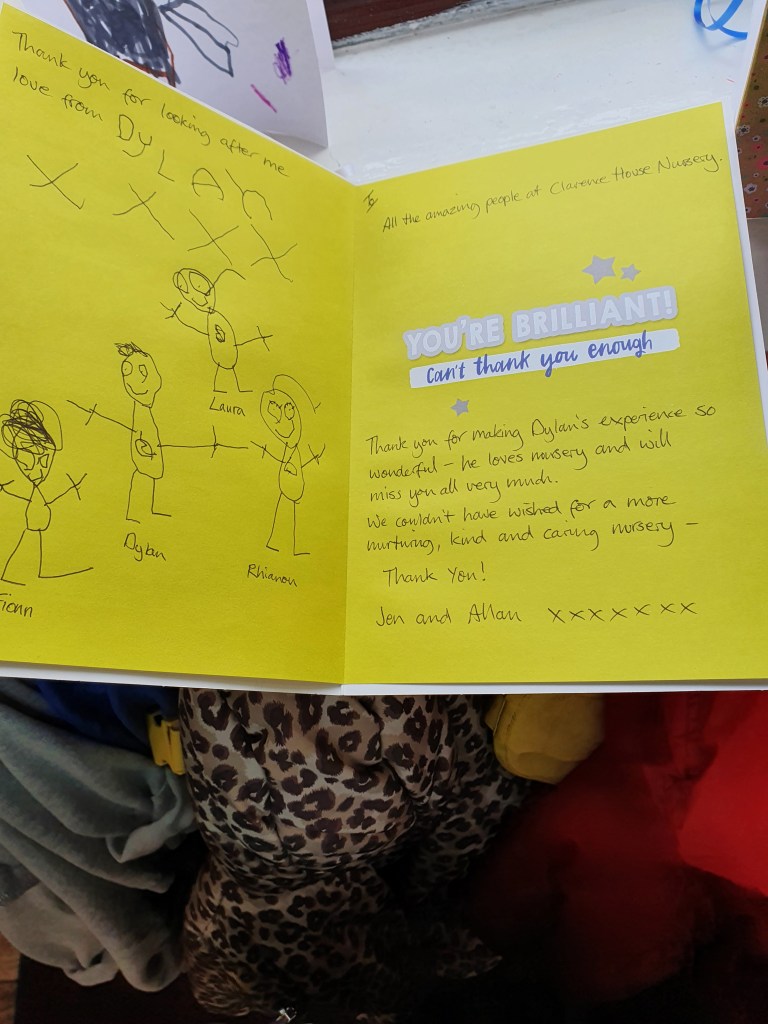 Thank you for looking after me
love from DYLAN
X X X X
Laura
Dylan
Rhianon
Fionn
To
All the amazing people at Clarence House Nursery.
YOU'RE BRILLIANT!
can't thank you enough
Thank you for making Dylan's experience so
wonderful – he loves nursery and will
miss you all very much.
We couldn't have wished for a more
nurturing, kind and caring nursery –
Thank You!
Jen and Allan xxxxxxx